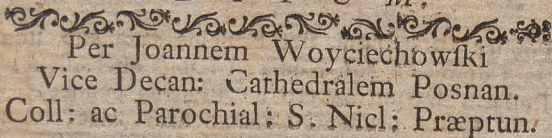 Per Joannem Woyciechowſki
Vice Decan: Cathedralem Posnan.
Coll: ac Parochial: S. Nicl: Præptun.